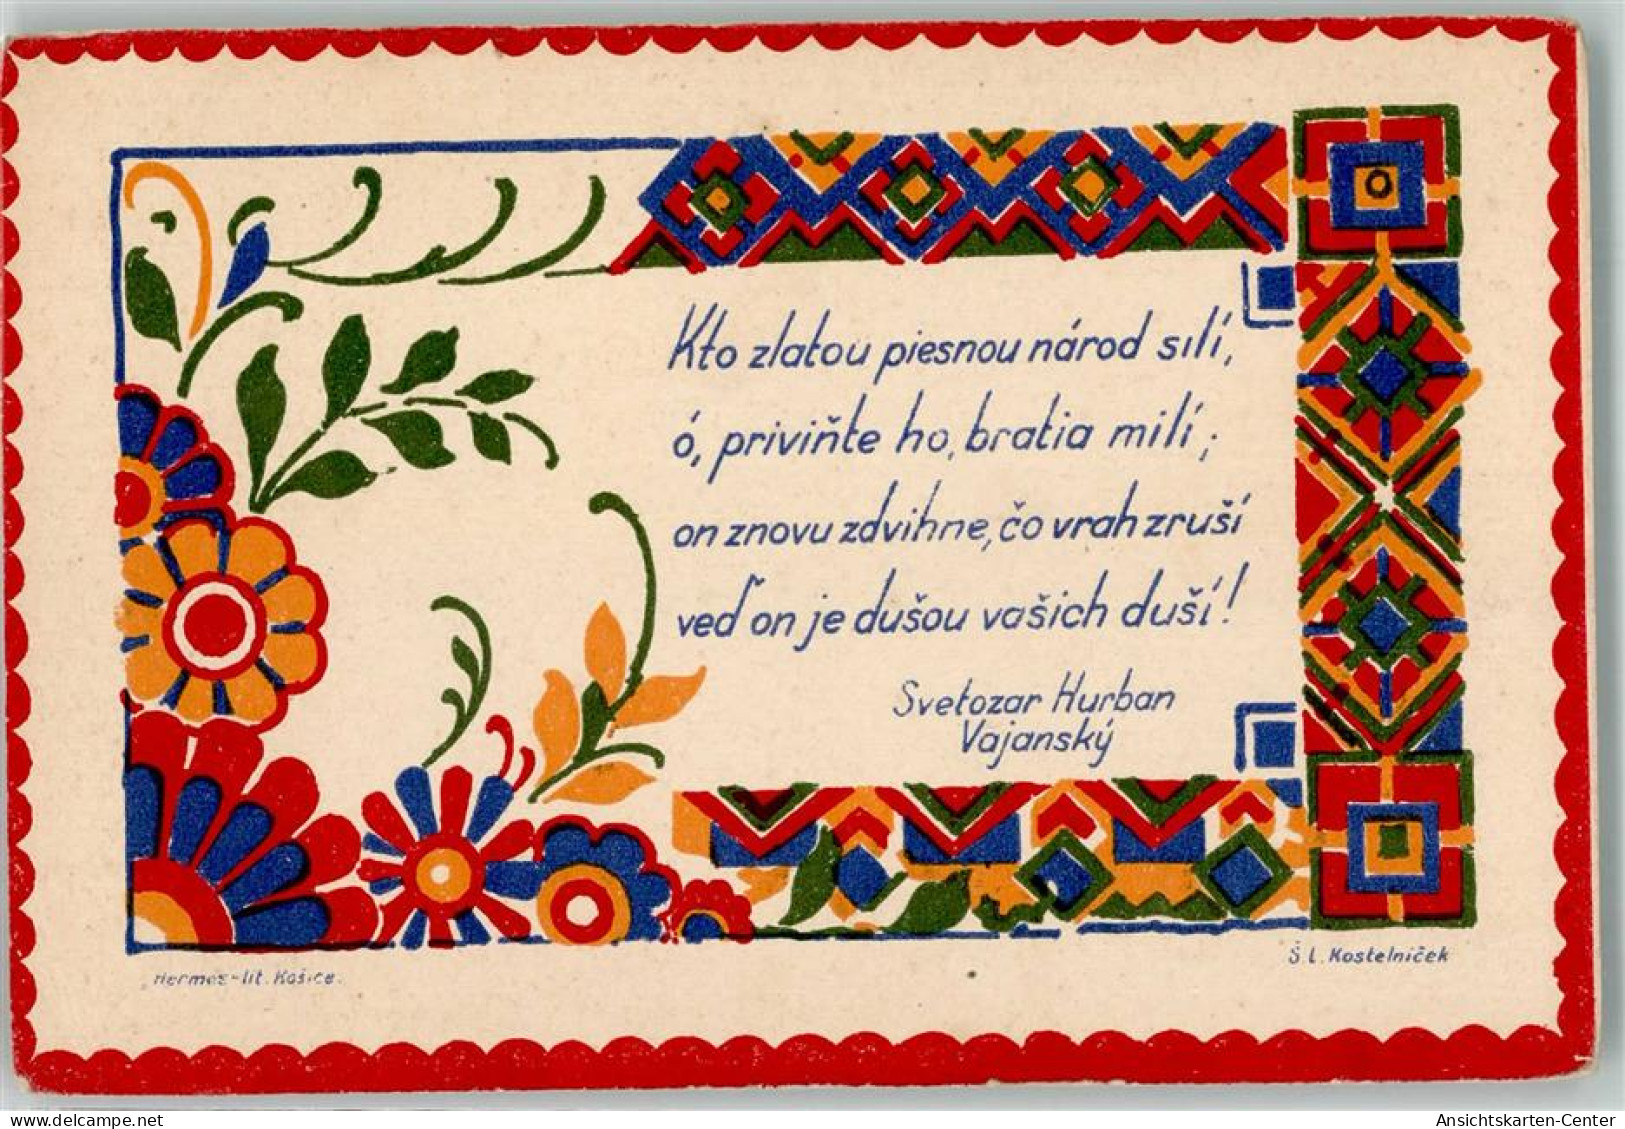 Kto zlatou piesnou národ silí,
ó, priviňte ho, bratia milí;
on znovu zdvihne, čo vrah zruší
veď on je dušou vašich duší!
Svetozar Hurban
Vajanský
Hermes-lit. Košice.
Š L. Kostelníček
delcampe.net
Ansichtskarten-Center